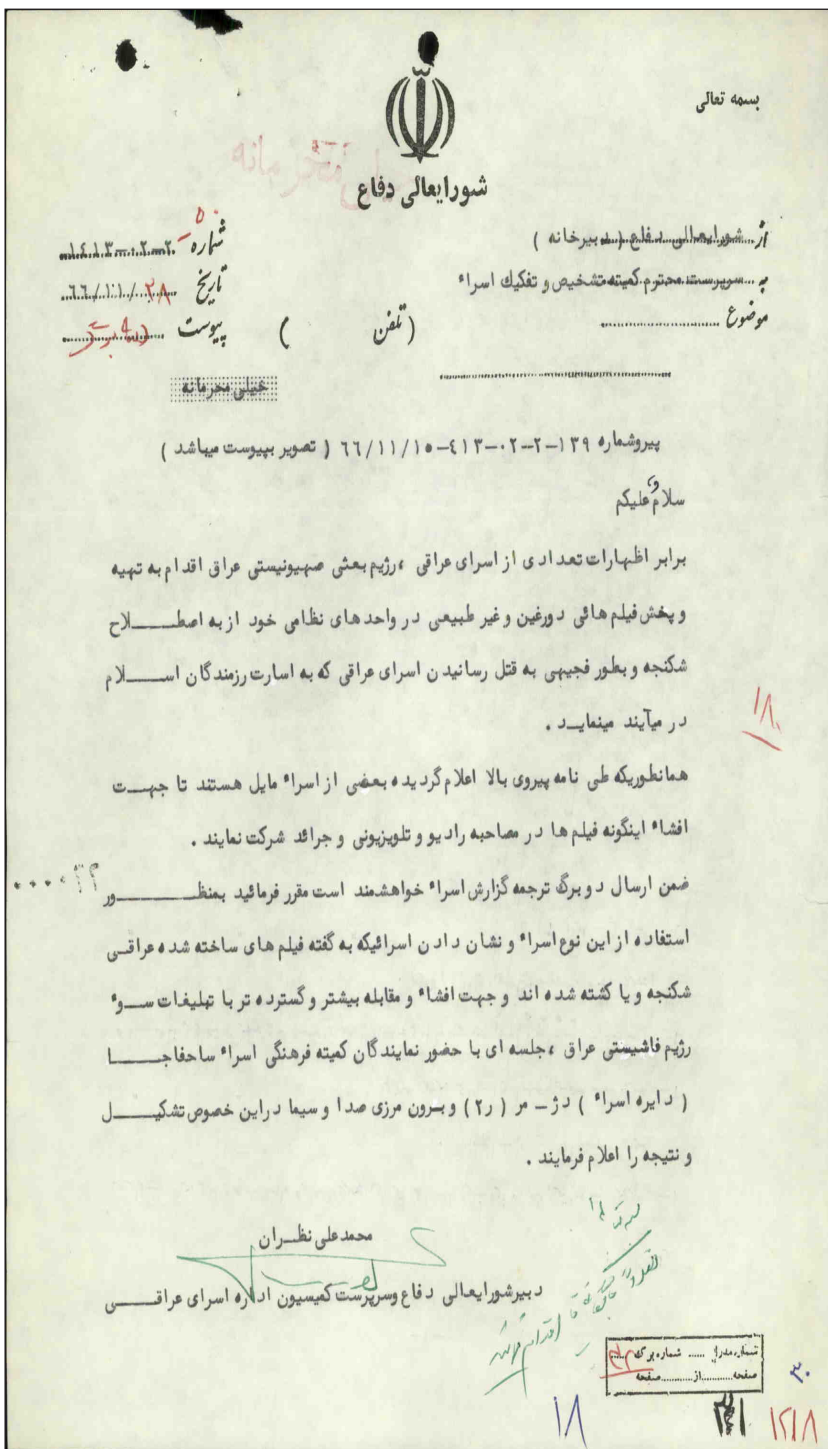 بسمه تعالی
شورایعالی دفاع
از شورایعالی دفاع ( دبیرخانه )
به سرپرست محترم کمیته تشخیص و تفکیک اسراء
موضوع
شماره
تاریخ ۶۶/۱۱/۲۸
پیوست
( تلفن )
خیلی محرمانه
پیروشماره ۱۳۹-۲-۰۲-۴۱۳-۶۶/۱۱/۱۵ ( تصویر بپیوست میباشد )
سلام علیکم
برابر اظهارات تعدادی از اسرای عراقی ،رژیم بعثی صهیونیستی عراق اقدام به تهیه
و پخش فیلم هائی دورغین و غیر طبیعی در واحدهای نظامی خود از به اصطـلاح
شکنجه و بطور فجیهی به قتل رسانیدن اسرای عراقی که به اسارت رزمندگان اسـلام
در میآیند مینمایـد .
همانطوریکه طی نامه پیروی بالا اعلام گردیده بعضی از اسراء مایل هستند تا جهـت
افشاء اینگونه فیلم ها در مصاحبه رادیو و تلویزیونی و جرائد شرکت نمایند .
ضمن ارسال دو برگ ترجمه گزارش اسراء خواهشمند است مقرر فرمائید بمنظـور
استفاده از این نوع اسراء و نشان دادن اسرائیکه به گفته فیلم های ساخته شده عراقـی
شکنجه و یا کشته شده اند و جهت افشاء و مقابله بیشتر و گسترده تر با تبلیغات سـوء
رژیم فاشیستی عراق ،جلسه ای با حضور نمایندگان کمیته فرهنگی اسراء ساحفاجـا
( دایره اسراء ) دژ - مر ( ر۲ ) و برون مرزی صدا و سیما در این خصوص تشکیـل
و نتیجه را اعلام فرمایند .
محمدعلی نظـران
دبیرشورایعالی دفاع وسرپرست کمیسیون اداره اسرای عراقـی
۱۸
شماره مدرک ..... شماره برگ
صفحه ........ از ........ صفحه
۳۰
۱۸
۱۲۱۸